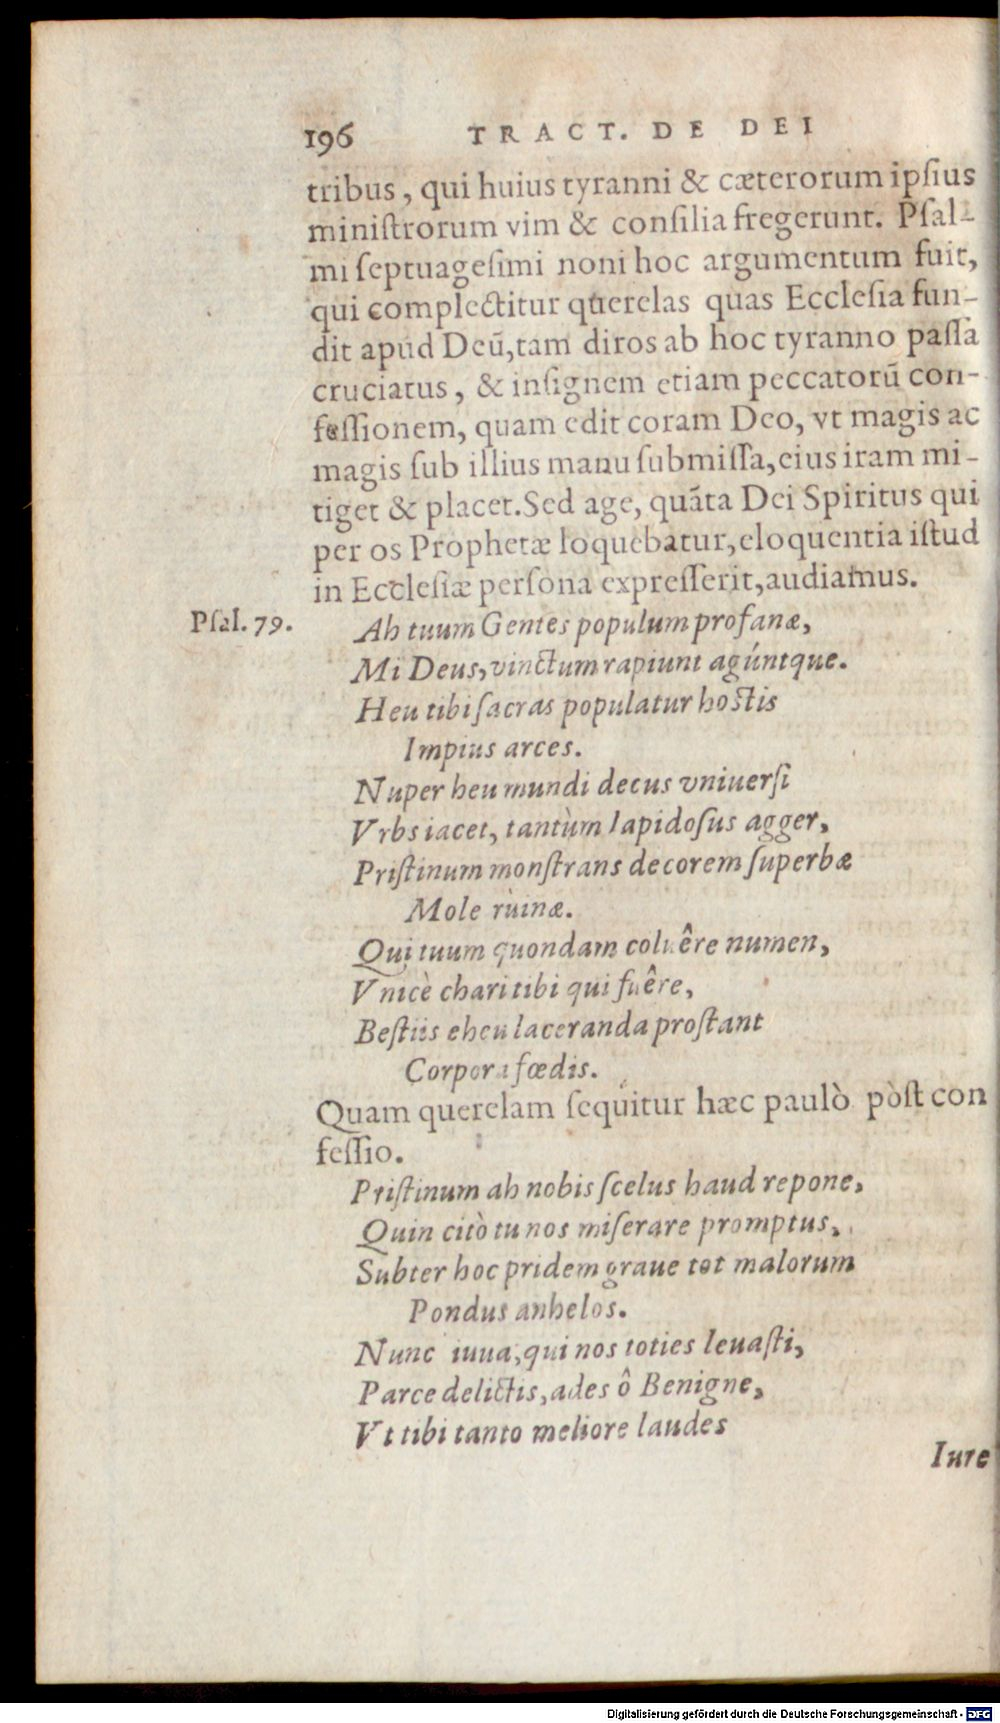 196 TRACT. DE DEI
tribus, qui huius tyranni & cæterorum ipſius
miniſtrorum vim & conſilia fregerunt. Pſal-
mi ſeptuageſimi noni hoc argumentum fuit,
qui complectitur querelas quas Eccleſia fun-
dit apud Deū, tam diros ab hoc tyranno paſſa
cruciatus, & inſignem etiam peccatorū con-
feſſionem, quam edit coram Deo, vt magis ac
magis ſub illius manu ſubmiſſa, eius iram mi-
tiget & placet. Sed age, quāta Dei Spiritus qui
per os Prophetæ loquebatur, eloquentia iſtud
in Eccleſiæ perſona expreſſerit, audiamus.
Pſal. 79. Ah tuum Gentes populum profanæ,
Mi Deus, vinctum rapiunt agúntque.
Heu tibi ſacras populatur hoſtis
Impius arces.
Nuper heu mundi decus vniuerſi
Vrbs iacet, tantùm lapidoſus agger,
Priſtinum monſtrans decorem ſuperbæ
Mole ruinæ.
Qui tuum quondam coluêre numen,
Vnicè chari tibi qui fuêre,
Beſtiis eheu laceranda proſtant
Corpora fœdis.
Quam querelam ſequitur hæc paulò pòſt con
feſſio.
Priſtinum ah nobis ſcelus haud repone,
Quin citò tu nos miſerare promptus,
Subter hoc pridem graue tot malorum
Pondus anhelos.
Nunc iuua, qui nos toties leuaſti,
Parce delictis, ades ô Benigne,
Vt tibi tanto meliore laudes
Iure
Digitalisierung gefördert durch die Deutsche Forschungsgemeinschaft - DFG